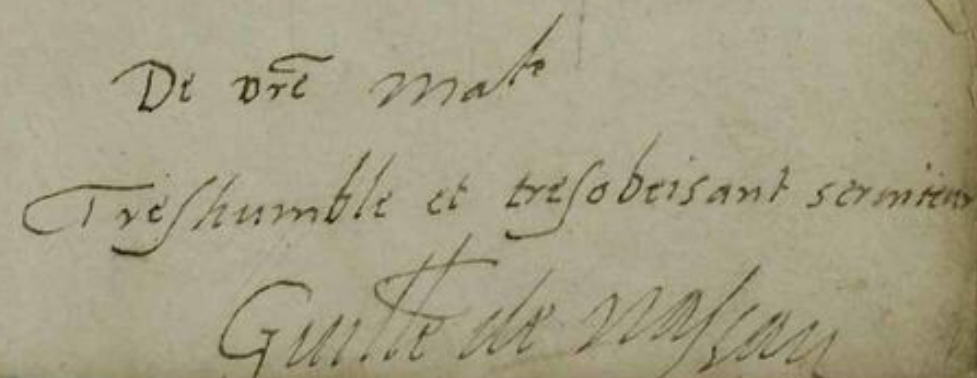 De vr̃e Ma^te
Treshumble et tresobeisant seruiteur
Guille de Nassau